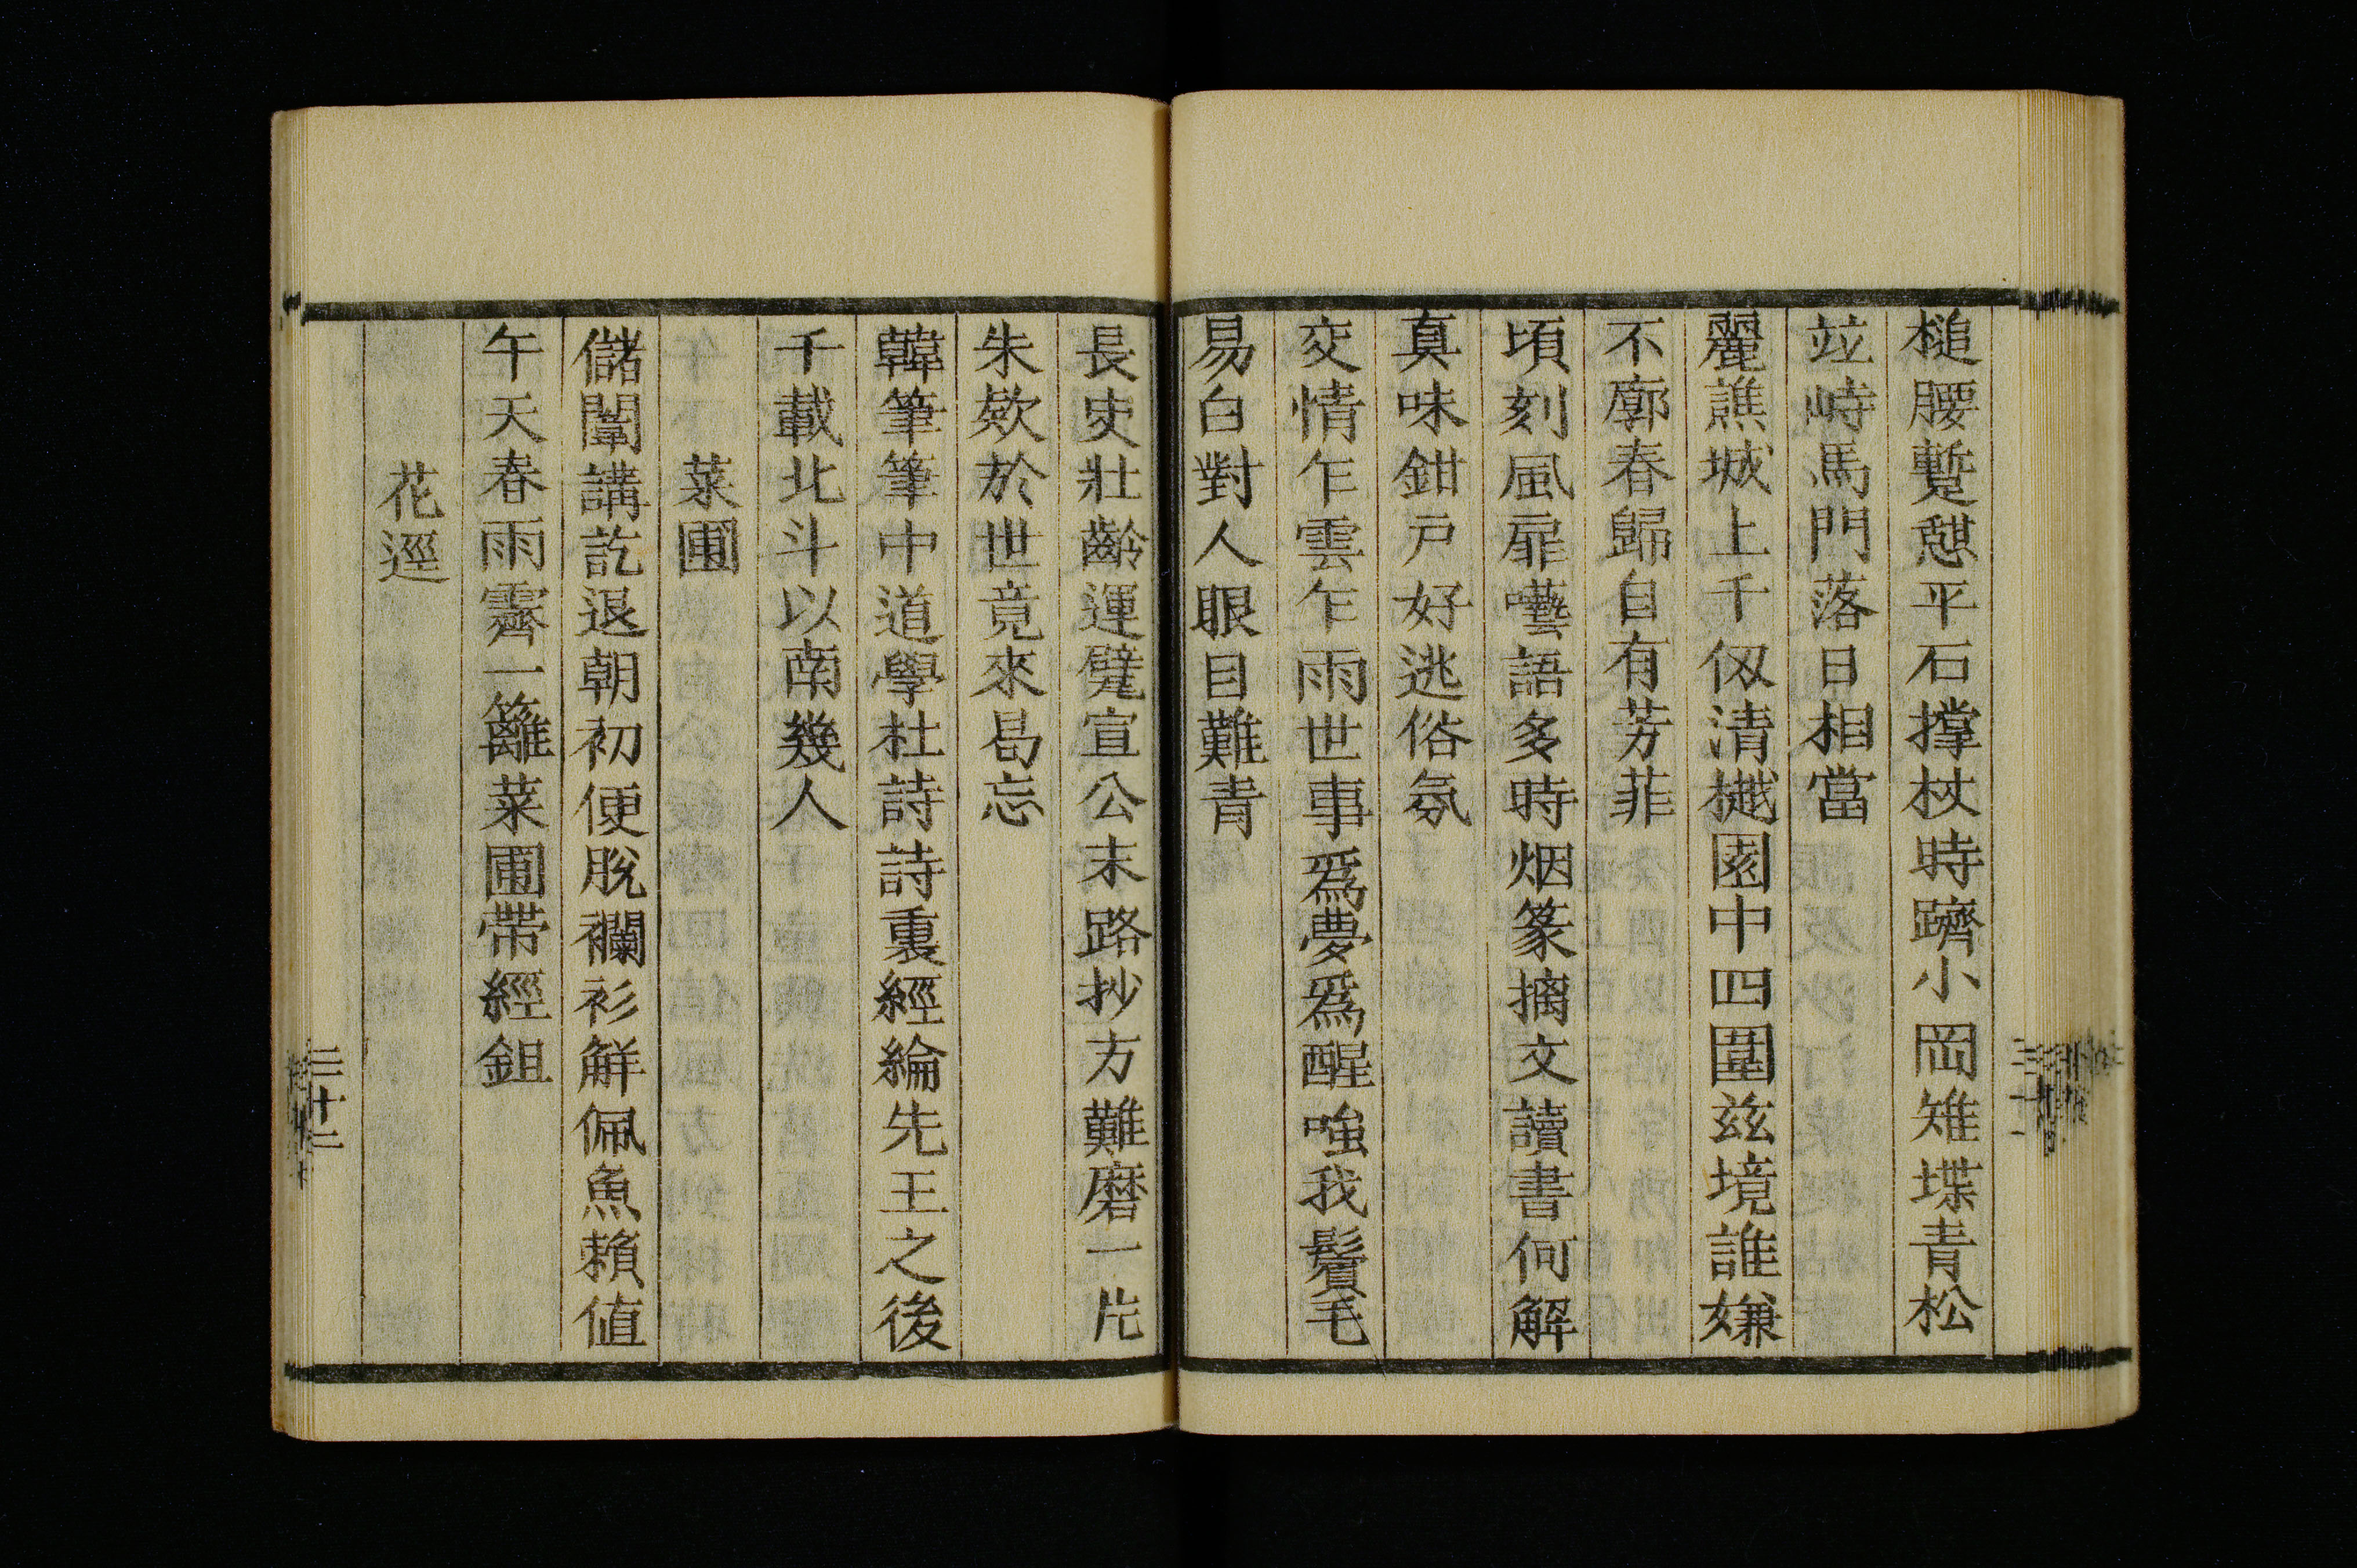 槌腰蹔憇平石撑杖時躋小岡雉堞青松
竝峙馬門落日相當
麗譙城上千仭清樾園中四圍茲境誰嫌
不廓春歸自有芳菲
頃刻風扉囈語多時烟篆摘文讀書何解
真味鉗戸好逃俗氛
交情乍雲乍雨世事爲夢爲醒嗤我鬢毛
易白對人眼目難青
長吏壯齡運甓宣公末路抄方難磨一片
朱欵於世竟來曷忘
韓筆筆中道學杜詩詩裏經綸先王之後
千載北斗以南幾人
菜圃
儲闈講訖退朝初便脫襴衫觧佩魚賴值
午天春雨霽一籬菜圃帶經鉏
花逕
三十二